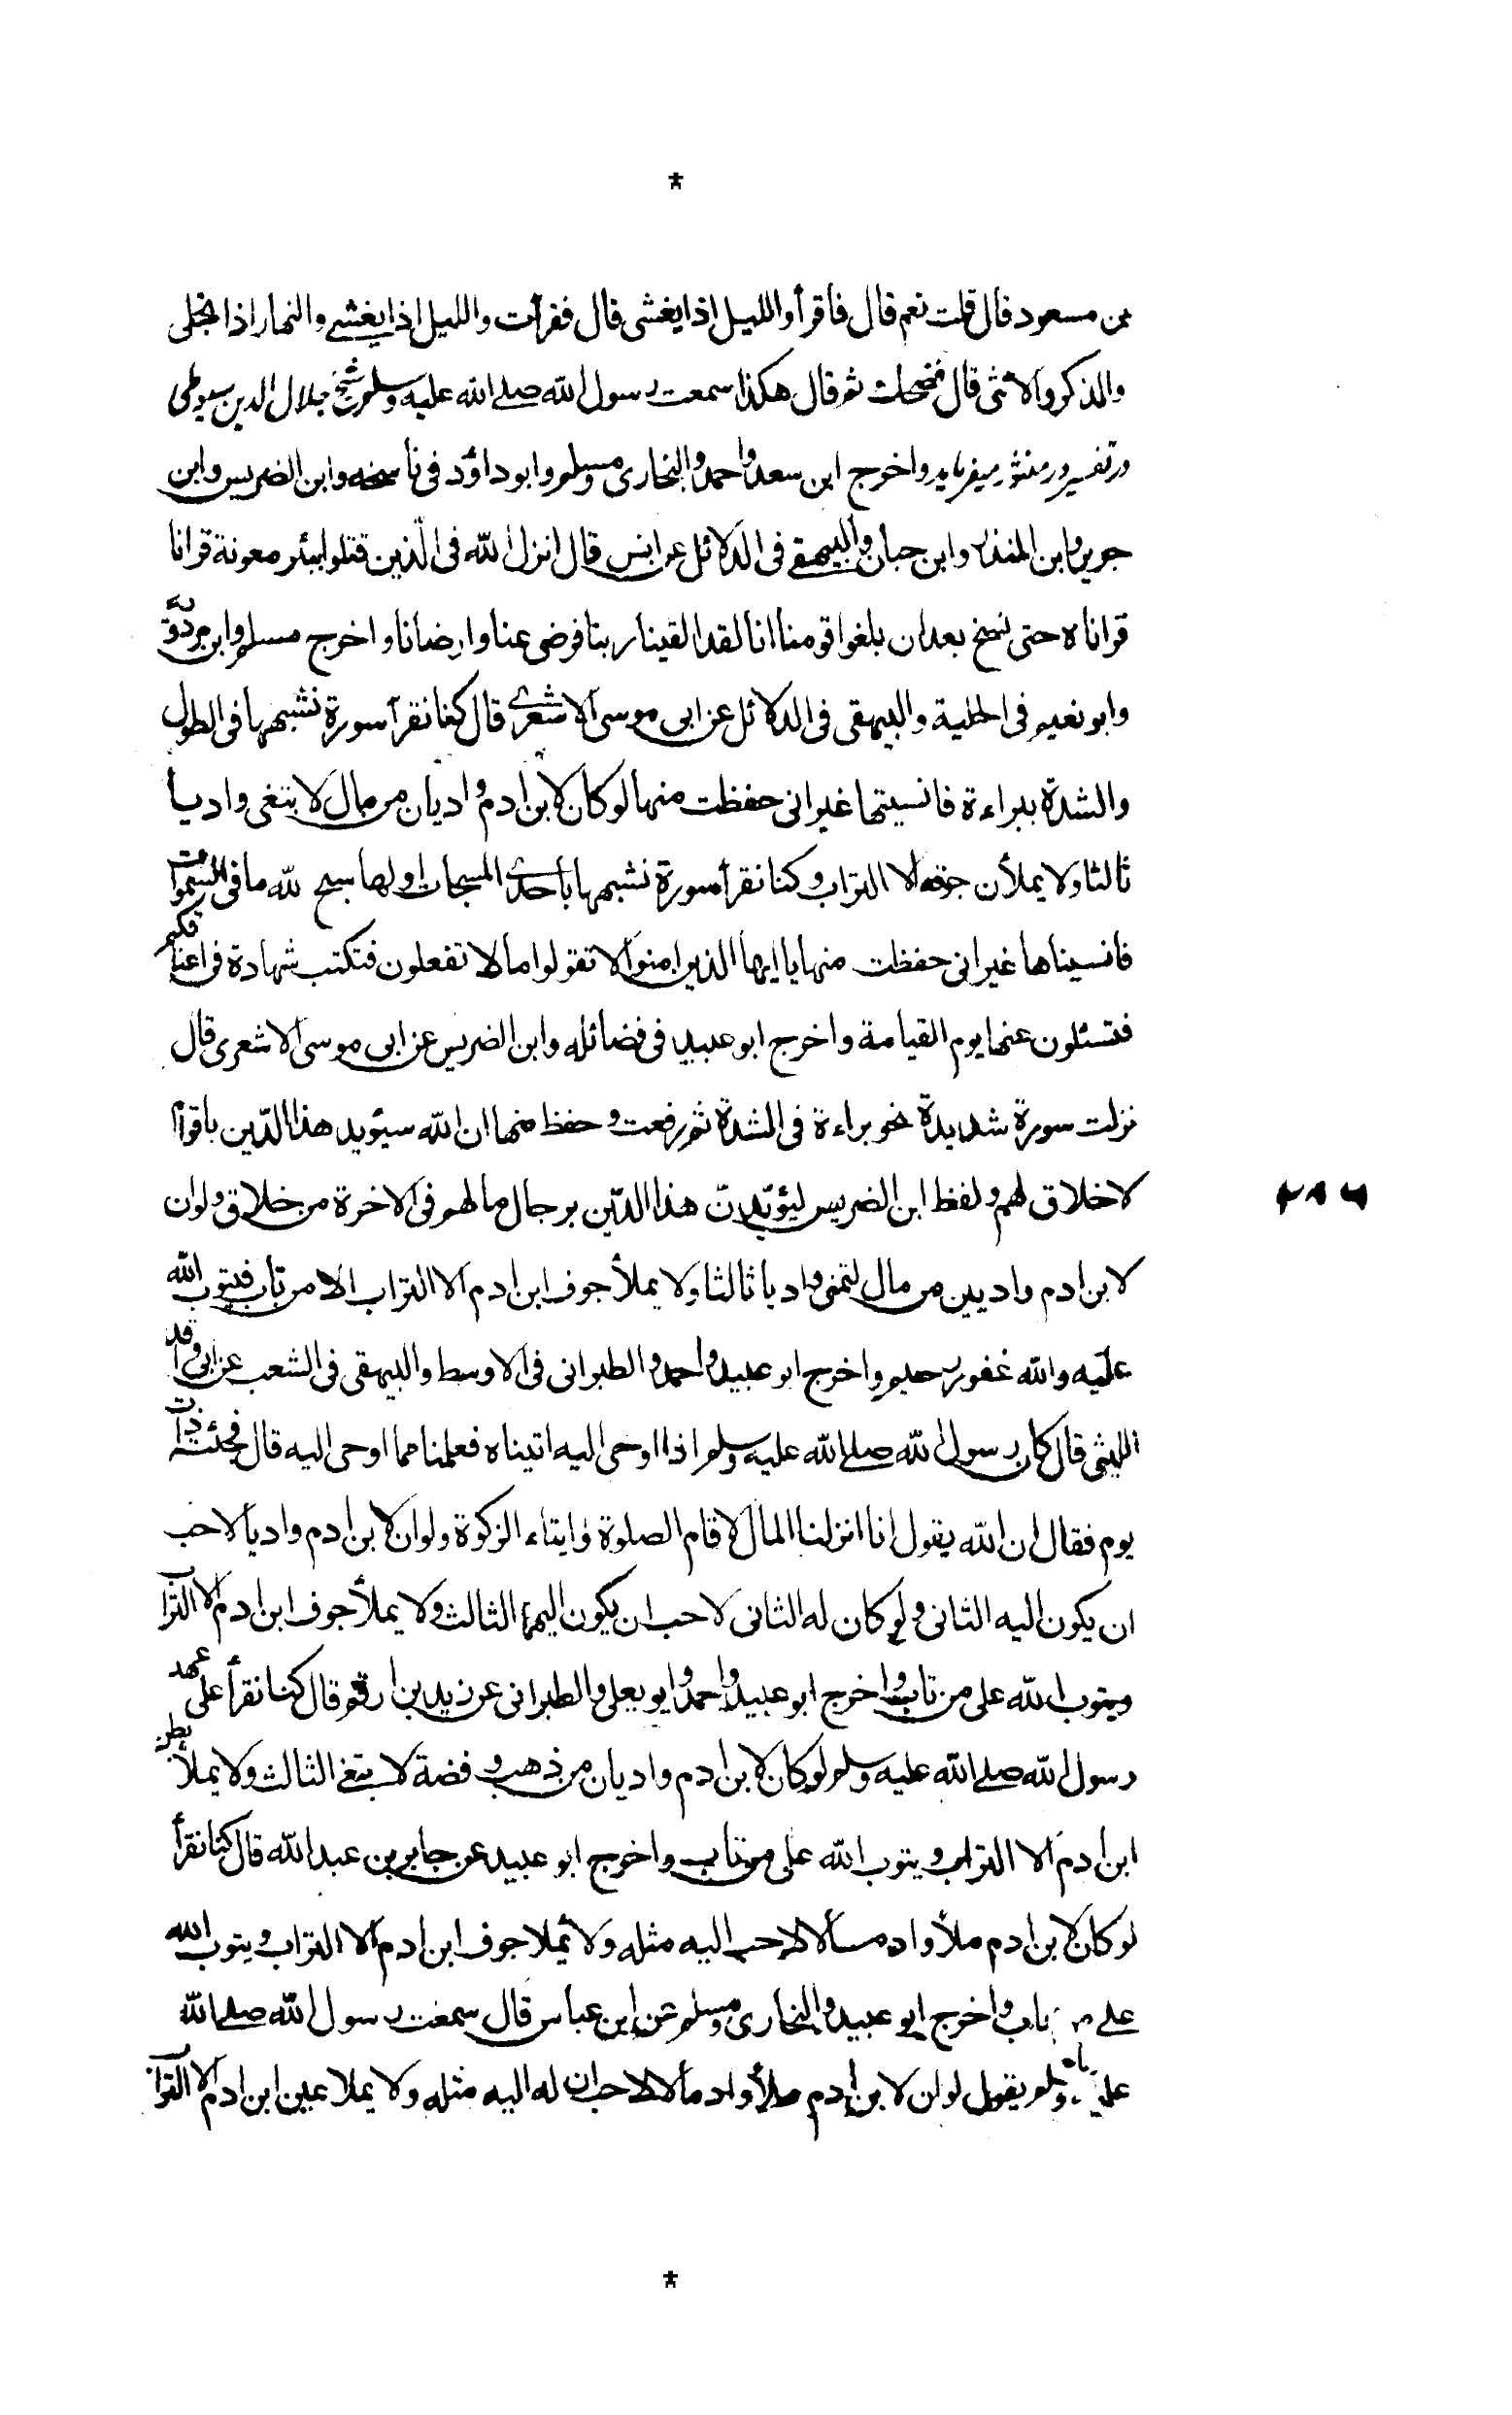 بن مسعود قال قلت نعم قال فاقرأ والليل اذا يغشى قال فقرأت والليل اذا يغشے والنهار اذا تجلى
والذكر والانثى قال فضحك ثم قال هكذا سمعت رسول الله صلے الله عليه وسلم و شيخ جلال الدين سيوطى
در تفسير در منثور ميفرمايد واخرج ابن سعد واحمد والبخارى ومسلم وابو داؤد فى ناسخه وابن الضريس وابن
جرير وابن المنذر وابن حبان والبيهقے فى الدلائل عن انس قال انزل الله فى الّذين قتلوا ببئر معونة قرانا
قراناه حتى نسخ بعد ان بلغوا قومنا انا لقد القينا ربنا فرضى عنا وارضانا واخرج مسلم وابن مردويه
وابو نعيم فى الحلية والبيهقى فى الدلائل عن ابى موسى الاشعرے قال كنا نقرأ سورة نشبهها فى الطول
والشدة ببراءة فانسيتها غير انى حفظت منها لو كان لابن ادم واديان من مال لابتغى واديا
ثالثا ولا يملأن جوفه الا التراب وكنا نقرأ سورة نشبهها باحدى المسبحات اولها سبح لله ما فى السموات
فانسيناها غير انى حفظت منها يا ايها الذين امنوا لا تقولوا ما لا تفعلون فتكتب شهادة فى اعناقكم
فتسئلون عنها يوم القيامة واخرج ابو عبيد فى فضائله وابن الضريس عن ابى موسى الاشعرى قال
نزلت سورة شديدة نحو براءة فى الشدة ثم رفعت و حفظ منها ان الله سيؤيد هذا الدّين باقوام
لا خلاق لهم ولفظ ابن الضريس ليؤيّدنّ هذا الدّين برجال ما لهم فى الاخرة من خلاق ولو ان
لابن ادم واديين من مال لتمنى واديا ثالثا ولا يملأ جوف ابن ادم الا التراب الا من تاب فيتوب الله
عليه والله غفور رحيم واخرج ابو عبيد واحمد والطبرانى فى الاوسط والبيهقى فى الشعب عن ابى واقد
الليثى قال كان رسول الله صلے الله عليه وسلم اذا اوحى اليه اتيناه فعلمنا مما اوحى اليه قال فجئته ذات
يوم فقال ان الله يقول انا انزلنا المال لاقام الصلوة وايتاء الزكوة ولو ان لابن ادم واديا لاحب
ان يكون اليه الثانى ولو كان له الثانى لاحب ان يكون اليهما الثالث ولا يملأ جوف ابن ادم الا التراب
ويتوب الله على من تاب واخرج ابو عبيد واحمد وابو يعلى والطبرانى عن زيد بن ارقم قال كنا نقرأ على عهد
رسول الله صلے الله عليه وسلم لو كان لابن ادم واديان من ذهب و فضة لابتغے الثالث ولا يملأ بطن
ابن ادم الا التراب ويتوب الله على من تاب واخرج ابو عبيد عن جابر بن عبد الله قال كنا نقرأ
لو كان لابن ادم ملأ واد مالا لاحب اليه مثله ولا يملا جوف ابن ادم الا التراب ويتوب الله
علے من تاب واخرج ابو عبيد والبخارى ومسلم عن ابن عباس قال سمعت رسول الله صلے الله
عليه وسلم يقول لو ان لابن ادم ملأ واد مالا لاحب ان له اليه مثله ولا يملا عين ابن ادم الا التراب